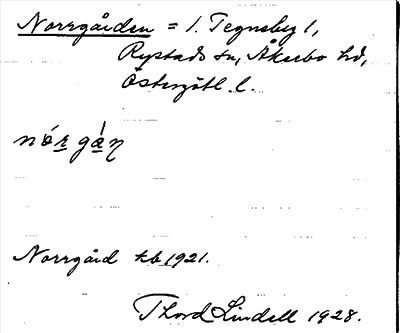 Norrgården = 1. Tegneby 1,
Rystads sn, Åkerbo hd,
Östergötl. l.
nórgán
Norrgård kb 1921.
Thord Lindell 1928.